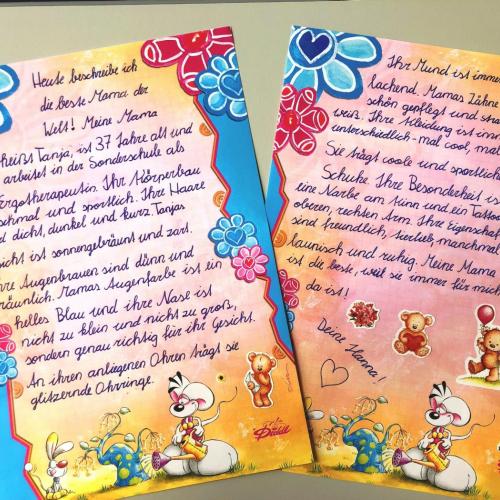 Heute beschreibe ich
die beste Mama der
Welt! Meine Mama
heißt Tanja, ist 37 Jahre alt und
arbeitet in der Sonderschule als
Ergotherapeutin. Ihr Körperbau
schmal und sportlich. Ihre Haare
d dicht, dunkel und kurz. Tanjas
sicht ist sonnengebräunt und zart.
hre Augenbrauen sind dünn und
räunlich. Mamas Augenfarbe ist ein
helles Blau und ihre Nase ist
nicht zu klein und nicht zu groß,
sondern genau richtig für ihr Gesicht.
An ihren anliegenen Ohren trägt sie
glitzernde Ohrringe.
Diddl
Ihr Mund ist imme
lachend. Mamas Zähne
schön gepflegt und stra
weiß. Ihre Kleidung ist imm
unterschiedlich - mal cool, mal
Sie trägt coole und sportlich
Schuhe. Ihre Besonderheit is
eine Narbe am Kinn und ein Tattoo
oberen, rechten Arm. Ihre Eigenschaf
sind freundlich, tierlieb, manchmal
launisch und ruhig. Meine Mama
ist die beste, weil sie immer für mich
da ist!
Deine Hanna!